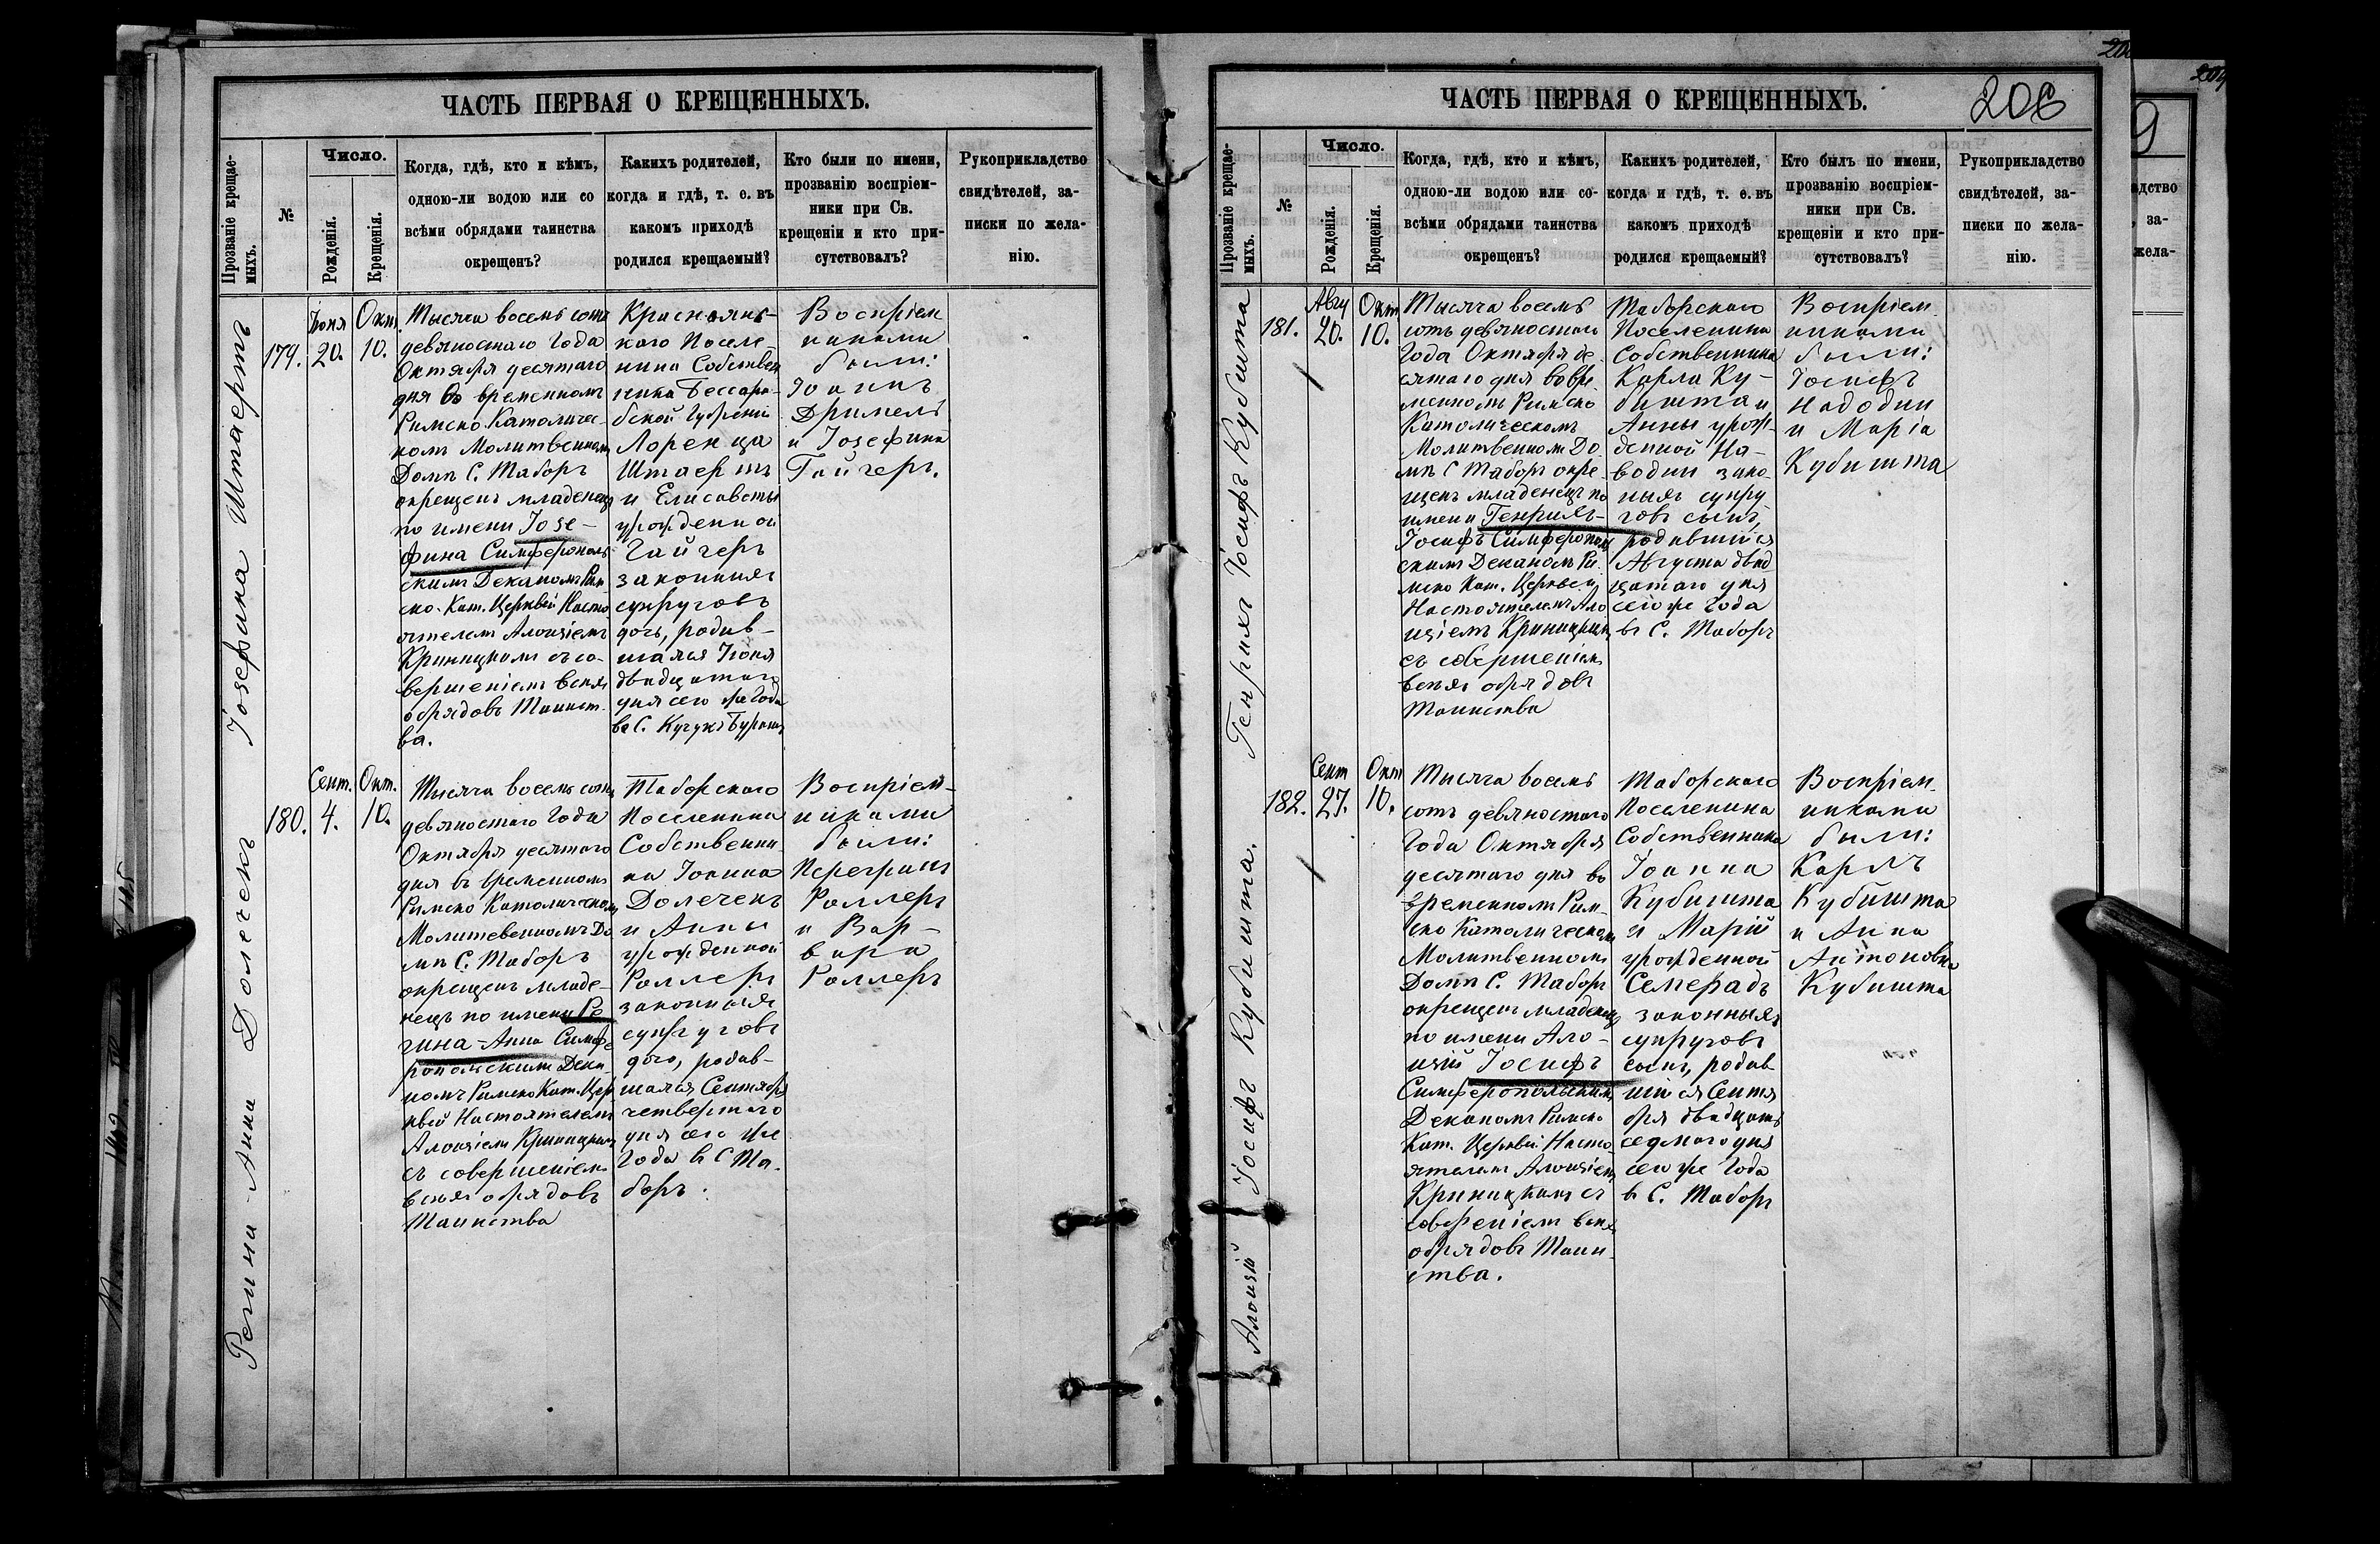 ЧАСТЬ ПЕРВАЯ О КРЕЩЕННЫХЪ.
Прозваніе крещае-
мыхъ.
№
Число.
Рожденія.
Крещенія.
Когда, гдѣ, кто и кѣмъ,
одною-ли водою или со
всѣми обрядами таинства
окрещенъ?
Какихъ родителей,
когда и гдѣ, т. е. въ
какомъ приходѣ
родился крещаемый?
Кто были по имени,
прозванію воспріем-
ники при Св.
крещеніи и кто при-
сутствовалъ?
Рукоприкладство
свидѣтелей, за-
писки по жела-
нію.
Іозефина Штаертъ
179.
Іюня
20.
Окт.
10.
Тысяча восемь сотъ
девяностаго Года
Октября десятаго
дня во временномъ
Римско Католичес-
комъ Молитвенномъ
Домѣ С. Таборъ
окрещенъ младенецъ
по имени Іозе-
фина Симферополь-
скимъ Деканомъ Рим
ско-Кат. Церквей Насто
ятелемъ Алоизіемъ
Криницкимъ съ со-
вершеніемъ всѣхъ
обрядовъ Таинст-
ва.
кого Поселе-
нина Собствен
ника Бессара-
бской Губерніи
Лоренца
Штаертъ
и Елисаветы
урожденной
Гайгеръ
законныхъ
супруговъ
дочь, родив-
шаяся Іюня
двадцатаго
дня сего же Года
Воспріем
никами
были:
Іоаннъ
Дримель
и Іозефина
Гайгеръ.
Регина-Анна Долечекъ
180.
Сент.
4.
Окт.
10.
Тысяча восемь сотъ
девяностаго Года
Октября десятаго
дня въ временномъ
Римско Католическомъ
Молитвенномъ До
мѣ С. Таборъ
окрещенъ младе-
нецъ по имени Ре
гина-Анна Симфе
ропольскимъ Дека
номъ Римско Кат. Цер
квей Настоятелемъ
Алоизіемъ Криницкимъ
съ совершеніемъ
всѣхъ обрядовъ
Таинства
Таборского
Поселенина
Собственни
ка Іоанна
Долечекъ
и Анны
урожденной
Роллеръ
законныхъ
супруговъ
дочь, родив-
шаяся Сентября
четвертаго
дня сего же
Года въ С Та-
боръ.
Воспріем-
никами
были:
Перегринъ
Роллеръ
и Вар-
вара
Роллеръ
ЧАСТЬ ПЕРВАЯ О КРЕЩЕННЫХЪ.
206
Прозваніе крещае-
мыхъ.
№
Число.
Рожденія.
Крещенія.
Когда, гдѣ, кто и кѣмъ,
одною-ли водою или со-
всѣми обрядами таинства
окрещенъ?
Какихъ родителей,
когда и гдѣ, т. е. въ
какомъ приходѣ
родился крещаемый?
Кто былъ по имени,
прозванію воспріем-
ники при Св.
крещеніи и кто при-
сутствовалъ?
Рукоприкладство
свидѣтелей, за-
писки по жела-
нію.
Генрихъ Іосифъ Кубишта
181.
Авгу
20.
Окт
10.
Тысяча восемь
сотъ девяностаго
Года Октября де-
сятаго дня во вре-
менномъ Римско
Католическомъ
Молитвенномъ До-
мѣ С Таборъ окре-
щенъ младенецъ по
имени Генрихъ-
Іосифъ Симферополь
скимъ Деканомъ Ри-
мско Кат. Церквей
Настоятелемъ Ало
изіемъ Криницкимъ
съ совершеніемъ
всѣхъ обрядовъ
Таинства
Таборского
Поселенина
Собственника
Карла Ку-
бишта и
Анны урож-
денной На-
водни зако
ныхъ супру
говъ сынъ,
родившійся
Августа двад
цатаго дня
сего же Года
въ С. Таборъ
Воспріем
никами
были:
Іосифъ
и Марія
Кубишта
Алоизій Іосифъ Кубишта.
182.
Сент
27.
Окт
10.
Тысяча восемь
сотъ девяностаго
Года Октября
десятаго дня во
временномъ Рим-
ско Католическомъ
Молитвенномъ
Домѣ С. Таборъ
окрещенъ младенецъ
по имени Ало-
изій Іосифъ
Симферопольскимъ
Деканомъ Римско
Кат. Церквей Насто
ятелемъ Алоизіемъ
Криницкимъ съ
обрядовъ Таин-
ства.
Таборского
Поселенина
Собственника
Іоанна
Кубишта
и Маріи
урожденной
Семерадъ
законныхъ
супруговъ
сынъ, родив
шійся Сентя
бря двадцать
седмого дня
сего же Года
въ С. Таборъ
Воспріем
никами
были:
Карлъ
Кубишта
и Анна
Антоновна
Кубишта
9
дство
за-
жела-